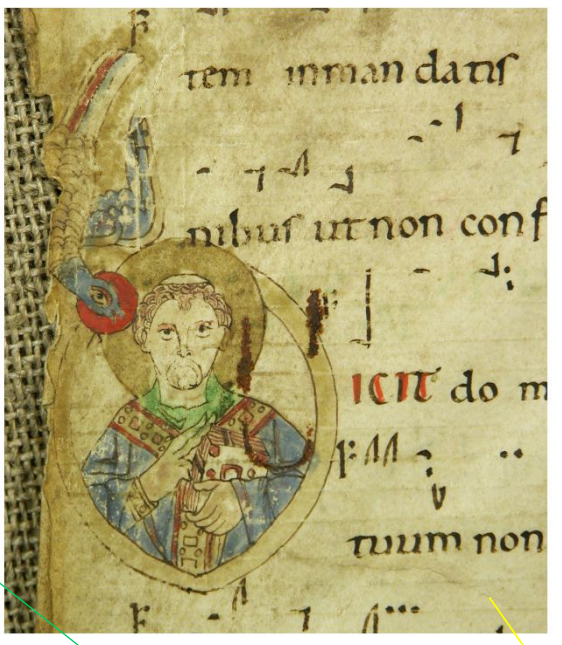 tem inman datis
nibus ut non conf
DICIT do m
tuum non